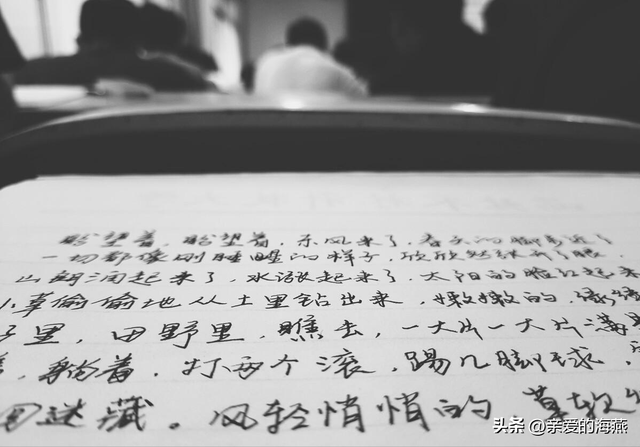 盼望着,盼望着,东风来了,春天的脚步近了
一切都像刚睡醒的样子,欣欣然张开了眼。
山朗润起来了,水涨起来了,太阳的脸红起来
小草偷偷地从土里钻出来,嫩嫩的,绿绿
子里,田野里,瞧去,一大片一大片满是
着,躺着,打两个滚,踢几脚球,
迷藏。风轻悄悄的,草软
头条 @亲爱的海燕